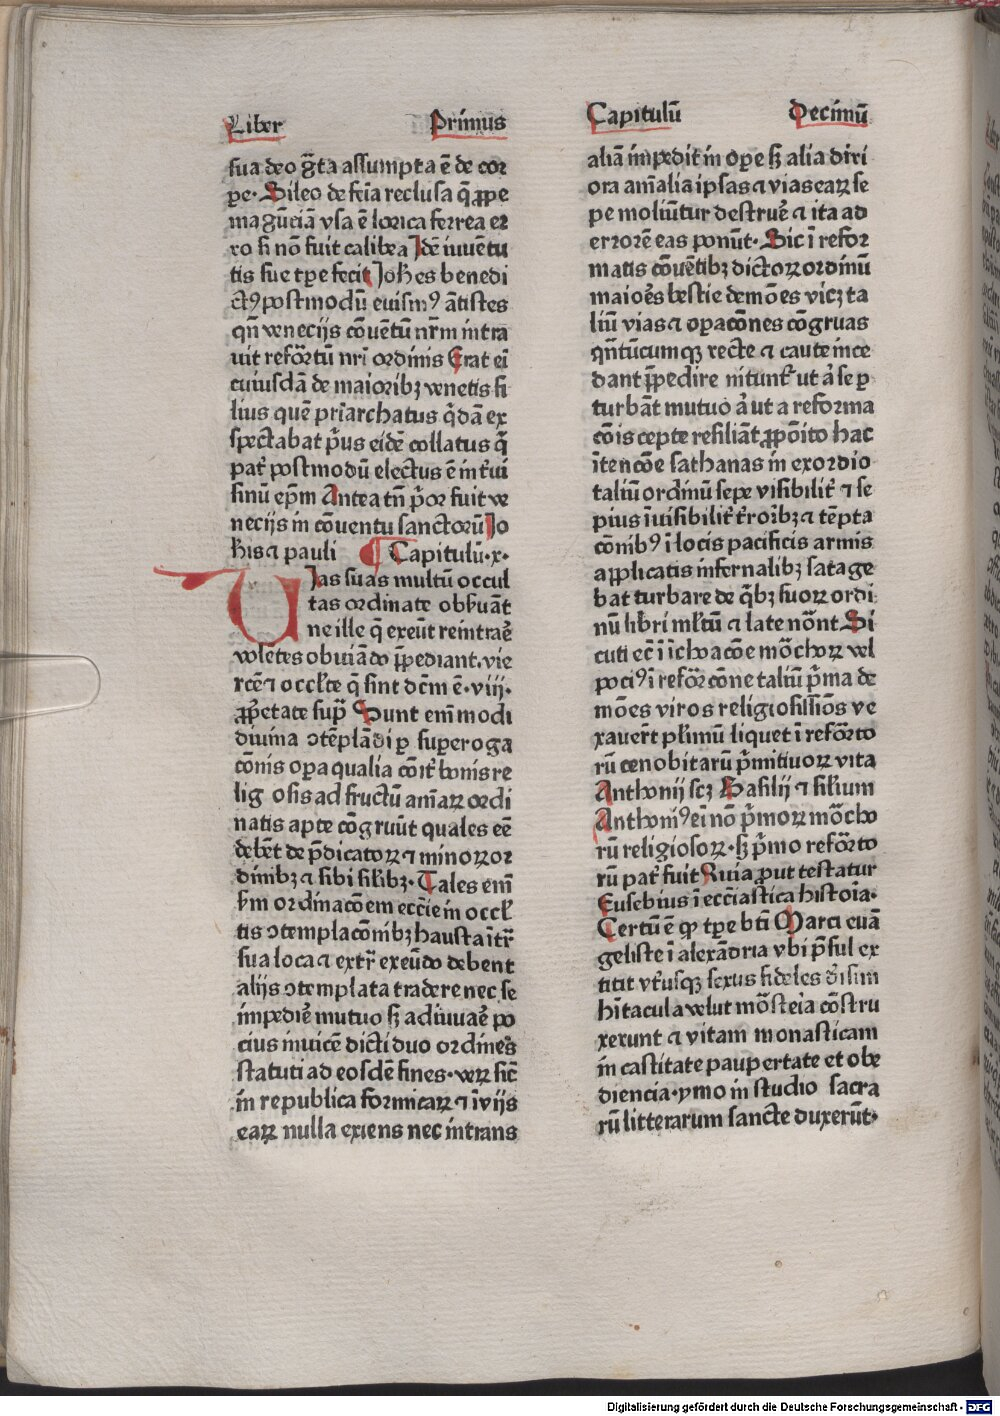 Liber Primus
sua deo gr̃ta assumpta ē de cor
pe. Sileo de feīa reclusa q̄ ꝓpe
magūciā vsa ē lorica ferrea er
ro si nō fuit calibea Idē iuuētu
tis sue tꝑe fecit Joh̃es benedi
ctꝰ postmodū euismꝰ ātistes
qñ veneciis cōuētū nr̃m intra
uit refōrtū nr̃i ordinis Erat ei
cuiusdā de maioribꝫ venetis fi
lius quē pr̃iarchatus q̄dā ex
spectabat pꝰus eidē collatus q̄
pat᷑ postmodū electus ē int᷑ui
sinū ep̄m Antea tñ pꝰor fuit ve
neciis in cōuentu sanctorū Jo
h̃is ⁊ pauli ¶ Capitulū .x.
VIas suas multū occul
tas ordinate obẜuāt
ne ille q̄ exeūt reintraē
volētes obuiādo p̄pediant. vie
rcē ⁊ occl̃te q̄ sint dc̃m ē .viij.
ꝓp̄etate sup̄ Sunt em̄ modi
diuina ↄtēplādi ꝑ superoga
cōnis oꝑa qualia cōit᷑ bonis re
lig osis ad fructū aīarꝝ ordi
natis apte cōgruūt quales eē
debēt de p̄dicatoꝝ ⁊ minoꝝ or
dinibꝫ ⁊ sibi silibꝫ. Tales em̄
ẜm ordinacōem ecc̄ie in occl̃
tis ↄtemplacōnibꝫ hausta ītr̃
sua loca ⁊ extr̃ exeūdo debent
aliis ↄtemplata tradere nec se
impediē mutuo sꝫ adiuuaē po
cius inuicē dicti duo ordines
statuti ad eosdē fines. veꝝ sic̄
in republica formicaꝝ ⁊ ī viis
eaꝝ nulla exiens nec intrans
Capitulū Decimū
aliā impedit in oꝑe sꝫ alia diri
ora aīalia ipsas ⁊ vias eaꝝ se
pe moliūtur destruē ⁊ ita ad
errorē eas ponūt. Sic ī refor
matis cōuētibꝫ dictoꝝ ordinū
maiores bestie demōes vicꝫ ta
liū vias ⁊ oꝑacōnes cōgruas
qñtūcumqꝫ recte ⁊ caute ince
dant p̄pedire nitunt᷑ ut a se ꝑ
turbāt mutuo aut a reforma
cōis cepte resiliāt ꝓpoīto hac
ītencōe sathanas in exordio
taliū ordinū sepe visibilit᷑ ⁊ se
pius īuisibilit᷑ t᷑roribꝫ ⁊ tēpta
cōnibꝰ ī locis pacificis armis
applicatis infernalibꝫ satage
bat turbare de q̄bꝫ suoꝝ ordi
nū libri ml̃tū ⁊ late nōnt Si
cuti ec̄ ī īchoacōe mōchoꝝ vel
pociꝰ ī refōrcōne taliū pꝰma de
mōes viros religiosissiōs ve
xauer̄t plꝰimū liquet ī refōrto
rū cenobitarū pꝰmitiuoꝝ vita
Anthonij scꝫ Basilij ⁊ silium
Anthoniꝰ ei nō pꝰmoꝝ mōcho
rū religiosoꝝ. sꝫ pꝰmo refōrto
rū pat᷑ fuit Quia ꝓut testatur
Eusebius ī ecc̄iastica histoīa.
Certū ē ꝙ tꝑe bt̄i Marci euā
geliste ī alexādria vbi p̄sul ex
titit vt᷑usqꝫ sexus fideles dīsim
hītacula velut mōsteīa cōstru
xerunt ⁊ vitam monasticam
in castitate paupertate et obe
diencia. ymo in studio sacra
rū litterarum sancte duxerūt.
Digitalisierung gefördert durch die Deutsche Forschungsgemeinschaft - DFG